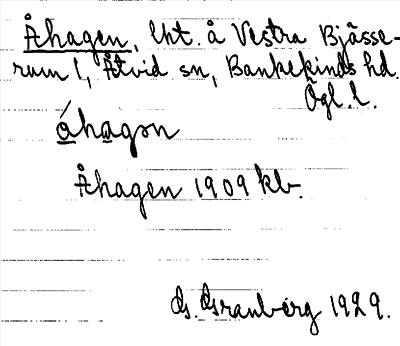 Åhagen, lht. å Vestra Bjässe-
rum 1, Åtvid sn, Bankekinds hd.
Ögl. l.
áhagən
Åhagen 1909 kb.
G. Granberg 1929.